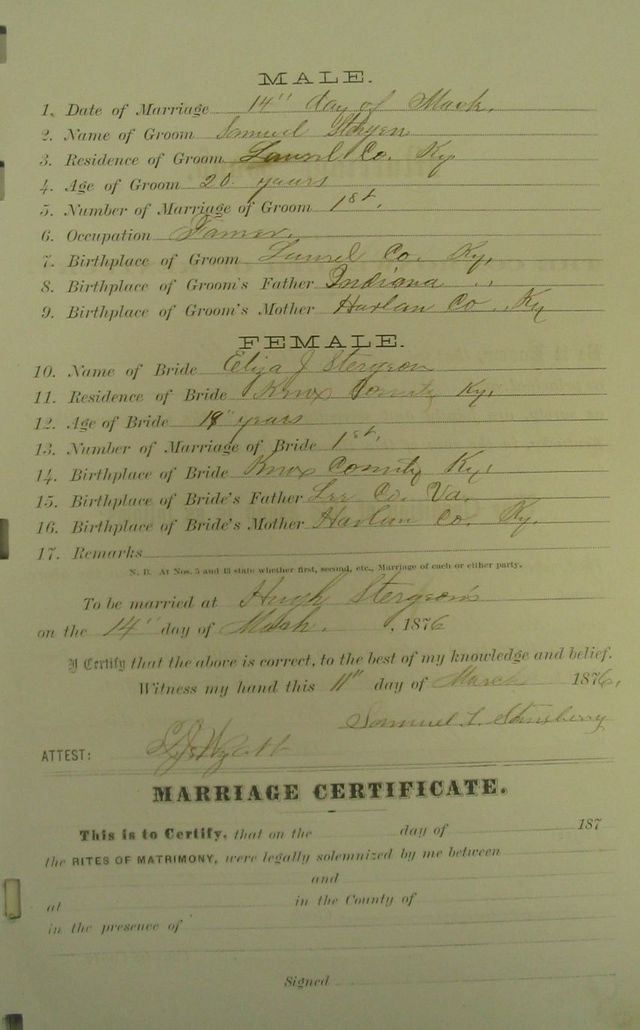 MALE.
1. Date of Marriage 14" day of March.
2. Name of Groom Samuel
3. Residence of Groom Laurel Co. Ky
4. Age of Groom 20 years
5. Number of Marriage of Groom 1st.
6. Occupation Farmer.
7. Birthplace of Groom Laurel Co. Ky,
8. Birthplace of Groom's Father Indiana
9. Birthplace of Groom's Mother Harlan Co. Ky
FEMALE.
10. Name of Bride Eliza J Stergeon
11. Residence of Bride Knox County Ky,
12. Age of Bride years
13. Number of Marriage of Bride 1st.
14. Birthplace of Bride Knox County Ky,
15. Birthplace of Bride's Father Lee Co. Va.
16. Birthplace of Bride's Mother Harlan Co. Ky.
17. Remarks
N. B. At Nos. 5 and 13 state whether first, second, etc., Marriage of each or either party.
To be married at Hugh Stergeon's
on the 14" day of March. , 1876
I Certify that the above is correct, to the best of my knowledge and belief.
Witness my hand this 11" day of March 1876,
Samuel
ATTEST:
MARRIAGE CERTIFICATE.
This is to Certify, that on the day of 187
the RITES OF MATRIMONY, were legally solemnized by me between
and
at in the County of
in the presence of
Signed